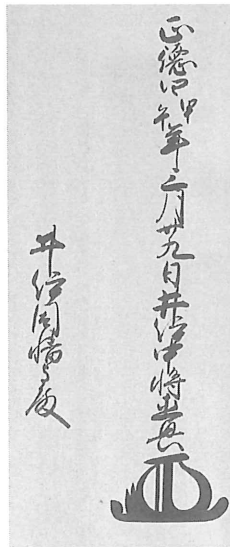 正徳四甲午年三月廿九日井伊中将直興
井伊因幡守殿